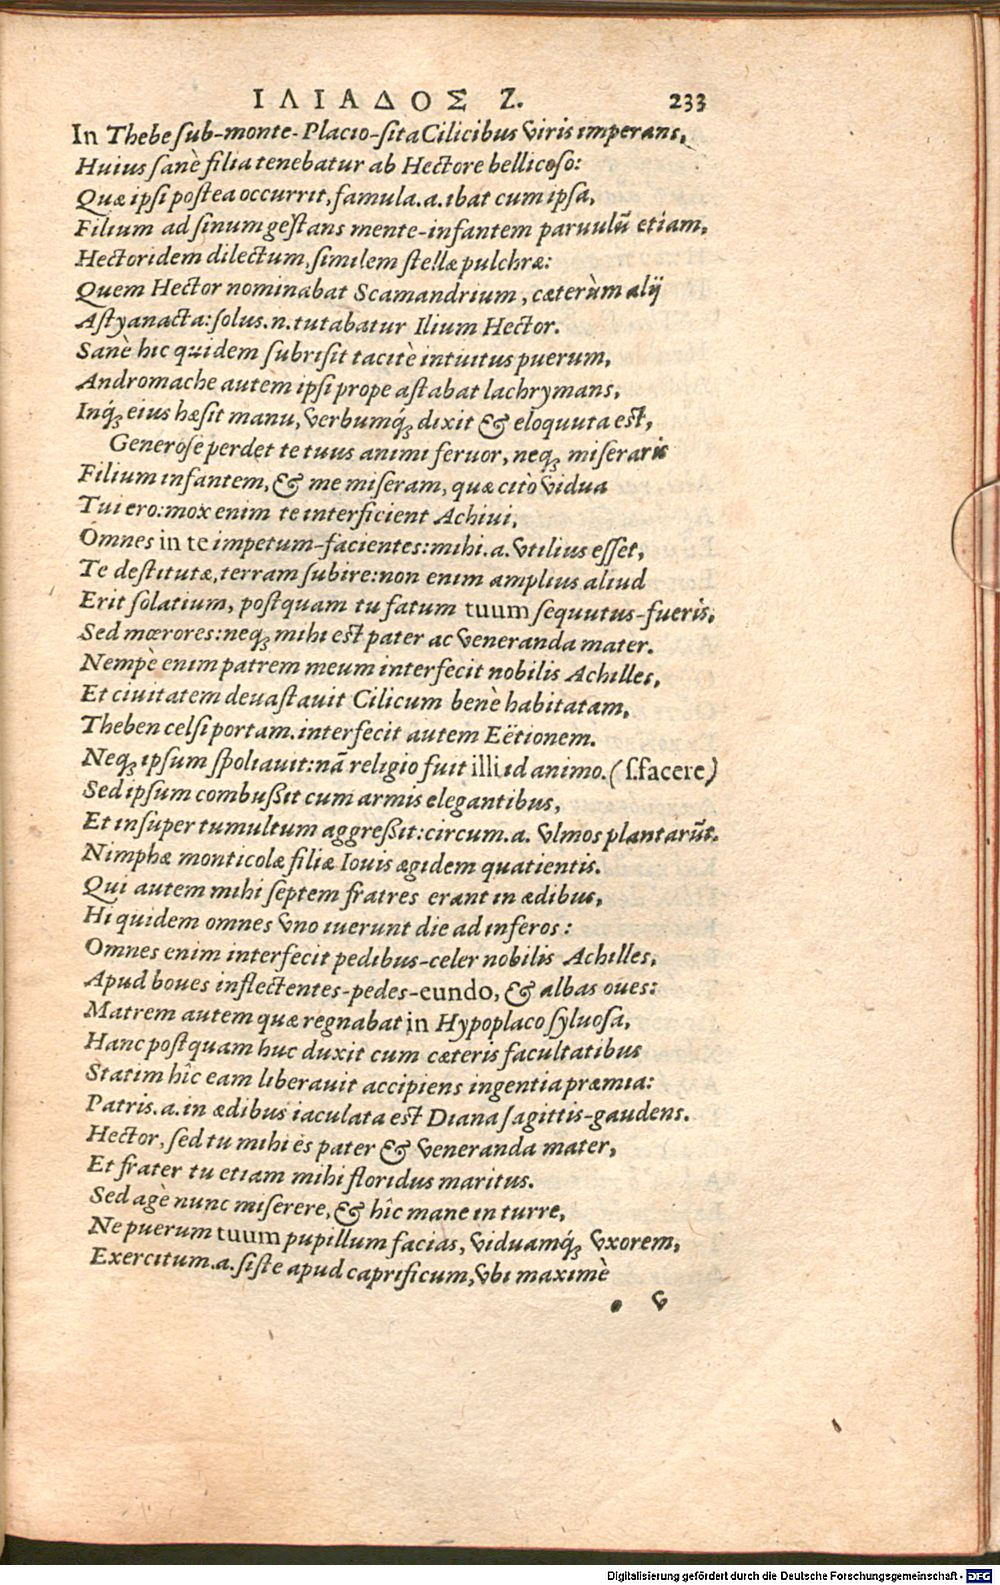 ΙΛΙΑΔΟΣ Ζ. 233
In Thebe sub-monte-Placio-sita Cilicibus viris imperans,
Huius sanè filia tenebatur ab Hectore bellicoso:
Quæ ipsi postea occurrit, famula .a. ibat cum ipsa,
Filium ad sinum gestans mente-infantem paruulũ etiam,
Hectoridem dilectum, similem stellæ pulchræ:
Quem Hector nominabat Scamandrium, cæterùm alij
Astyanacta: solus .n. tutabatur Ilium Hector.
Sanè hic quidem subrisit tacitè intuitus puerum,
Andromache autem ipsi prope astabat lachrymans,
Inq́ꝫ eius hæsit manu, verbumq́ꝫ dixit & eloquuta est,
Generose perdet te tuus animi feruor, neqꝫ miseraris
Filium infantem, & me miseram, quæ citò vidua
Tui ero: mox enim te interficient Achiui,
Omnes in te impetum-facientes: mihi .a. vtilius esset,
Te destitutæ, terram subire: non enim amplius aliud
Erit solatium, postquam tu fatum tuum sequutus-fueris,
Sed mœrores: neqꝫ mihi est pater ac veneranda mater.
Nempè enim patrem meum interfecit nobilis Achilles,
Et ciuitatem deuastauit Cilicum benè habitatam,
Theben celsiportam. interfecit autem Eëtionem.
Neqꝫ ipsum spoliauit: nã religio fuit illi id animo. (s. facere)
Sed ipsum combussit cum armis elegantibus,
Et insuper tumultum aggressit: circum .a. vlmos plantarũt.
Nimphæ monticolæ filiæ Iouis ægidem quatientis.
Qui autem mihi septem fratres erant in ædibus,
Hi quidem omnes vno iuerunt die ad inferos:
Omnes enim interfecit pedibus-celer nobilis Achilles,
Apud boues inflectentes-pedes-eundo, & albas oues:
Matrem autem quæ regnabat in Hypoplaco syluosa,
Hanc postquam huc duxit cum cæteris facultatibus
Statim hîc eam liberauit accipiens ingentia præmia:
Patris .a. in ædibus iaculata est Diana sagittis-gaudens.
Hector, sed tu mihi es pater & veneranda mater,
Et frater tu etiam mihi floridus maritus.
Sed agè nunc miserere, & hîc mane in turre,
Ne puerum tuum pupillum facias, viduamq́ꝫ vxorem,
Exercitum .a. siste apud caprificum, vbi maximè
v
Digitalisierung gefördert durch die Deutsche Forschungsgemeinschaft - DFG